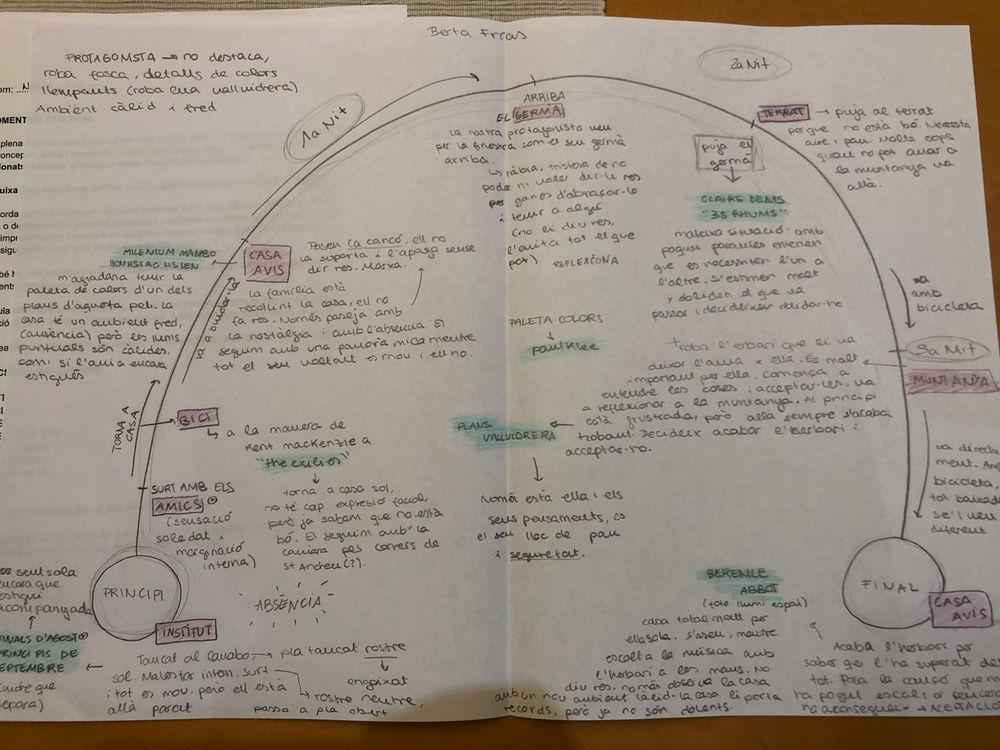 Berta Frcas
PROTAGONISTA → no destaca,
roba fosca, detalls de colors
llempants (roba Eva vallvidrera)
Ambient càlid i fred
1a Nit
2a Nit
ARRIBA
EL GERMÀ
la nostra protagonista veu
per la finestra com el seu germà
arriba.
↳ ràbia, tristesa de no
poder ni voler dir-li res
per ganes d'abraçar-lo
i tenir a algú
(no li diu res,
l'evita tot el que
pot)
REFLEXIONA
TERRAT → puja al terrat
perque no està bé. Necessita
aire i pau. Molts cops
quan no pot anar a
la muntanya va
allà.
puja el
germà
CLAIRE DENIS
"35 RHUMS"
mateixa situació: amb
poques paraules entenen
que es necessiten l'un a
l'altre. S'estimen molt
i obliden el que va
passar i decideixen deixar-ho
va
amb
bicicleta
3a Nit
MUNTANYA
MILENIUM MAMBO
HOU HSIAO HSIEN
m'agradaria tenir la
paleta de colors d'un dels
plans d'aquesta peli. La
casa té un ambient fred,
(ausència) però les llums
puntuals són càlides.
com si l'àvia encara
estigués
CASA
AVIS
Posen la cançó, ell no
la suporta i l'apaga sense
dir res. Marxa.
la família està
recollint la casa, ell no
fa res. Només passeja amb
la nostàlgia i amb l'absència. El
seguim amb una panoràmica mentre
tot el seu voltant es mou i ell no.
va a buidar-la
PALETA COLORS
paul Klee
Troba l'erbari que li va
deixar l'àvia x ella. És molt
important per ella. comença a
entendre les coses i acceptar-les. va
a reflexionar a la muntanya. Al principi
està frustrada, però allà sempre s'acaba
trobant. Decideix acabar l'herbari i
acceptar-ho.
PLANS
VALLVIDRERA
Només està ella i els
seus pensaments, es
el seu lloc de pau
i seguretat.
va directa
ment. Amb
bicicleta,
tot baixada
se'l veu
diferent
TORNA A
CASA
BICI
↳ a la manera de
Kent mackenzie a
"the exiles"
torna a casa sol,
no té cap expresió facial,
però ja sabem que no està
bé. El seguim amb la
càmara pels carrers de
st Andreu(?).
SURT AMB ELS
AMICS
(sensació
soledat i
marginació
interna)
PRINCIPI
INSTITUT
ABSÈNCIA
seul sola
encara que
estigui
acompanyada
FINALS D'AGOST
PRINCIPIS DE
SEPTEMBRE
Tancat al lavabo → pla tancat rostre
sol. Malestar intern. Surt
i tot es mou, però ell està
allà parat
engoixat
rostre neutre,
passa a pla obert
BERENICE
ABBOT
(foto llum i espai)
casa total ment per
ella sola. s'aseu, mentre
escolta la música amb
l'herbari a les mans. No
diu res, només observa la casa
amb un nou ambient càlid. la casa li porta
records, però ja no són dolents.
FINAL
CASA
AVIS
Acaba l'herbari per
saber que l'ha superat del
tot. Posa la cançó que mai
ha pogut escoltar sencera